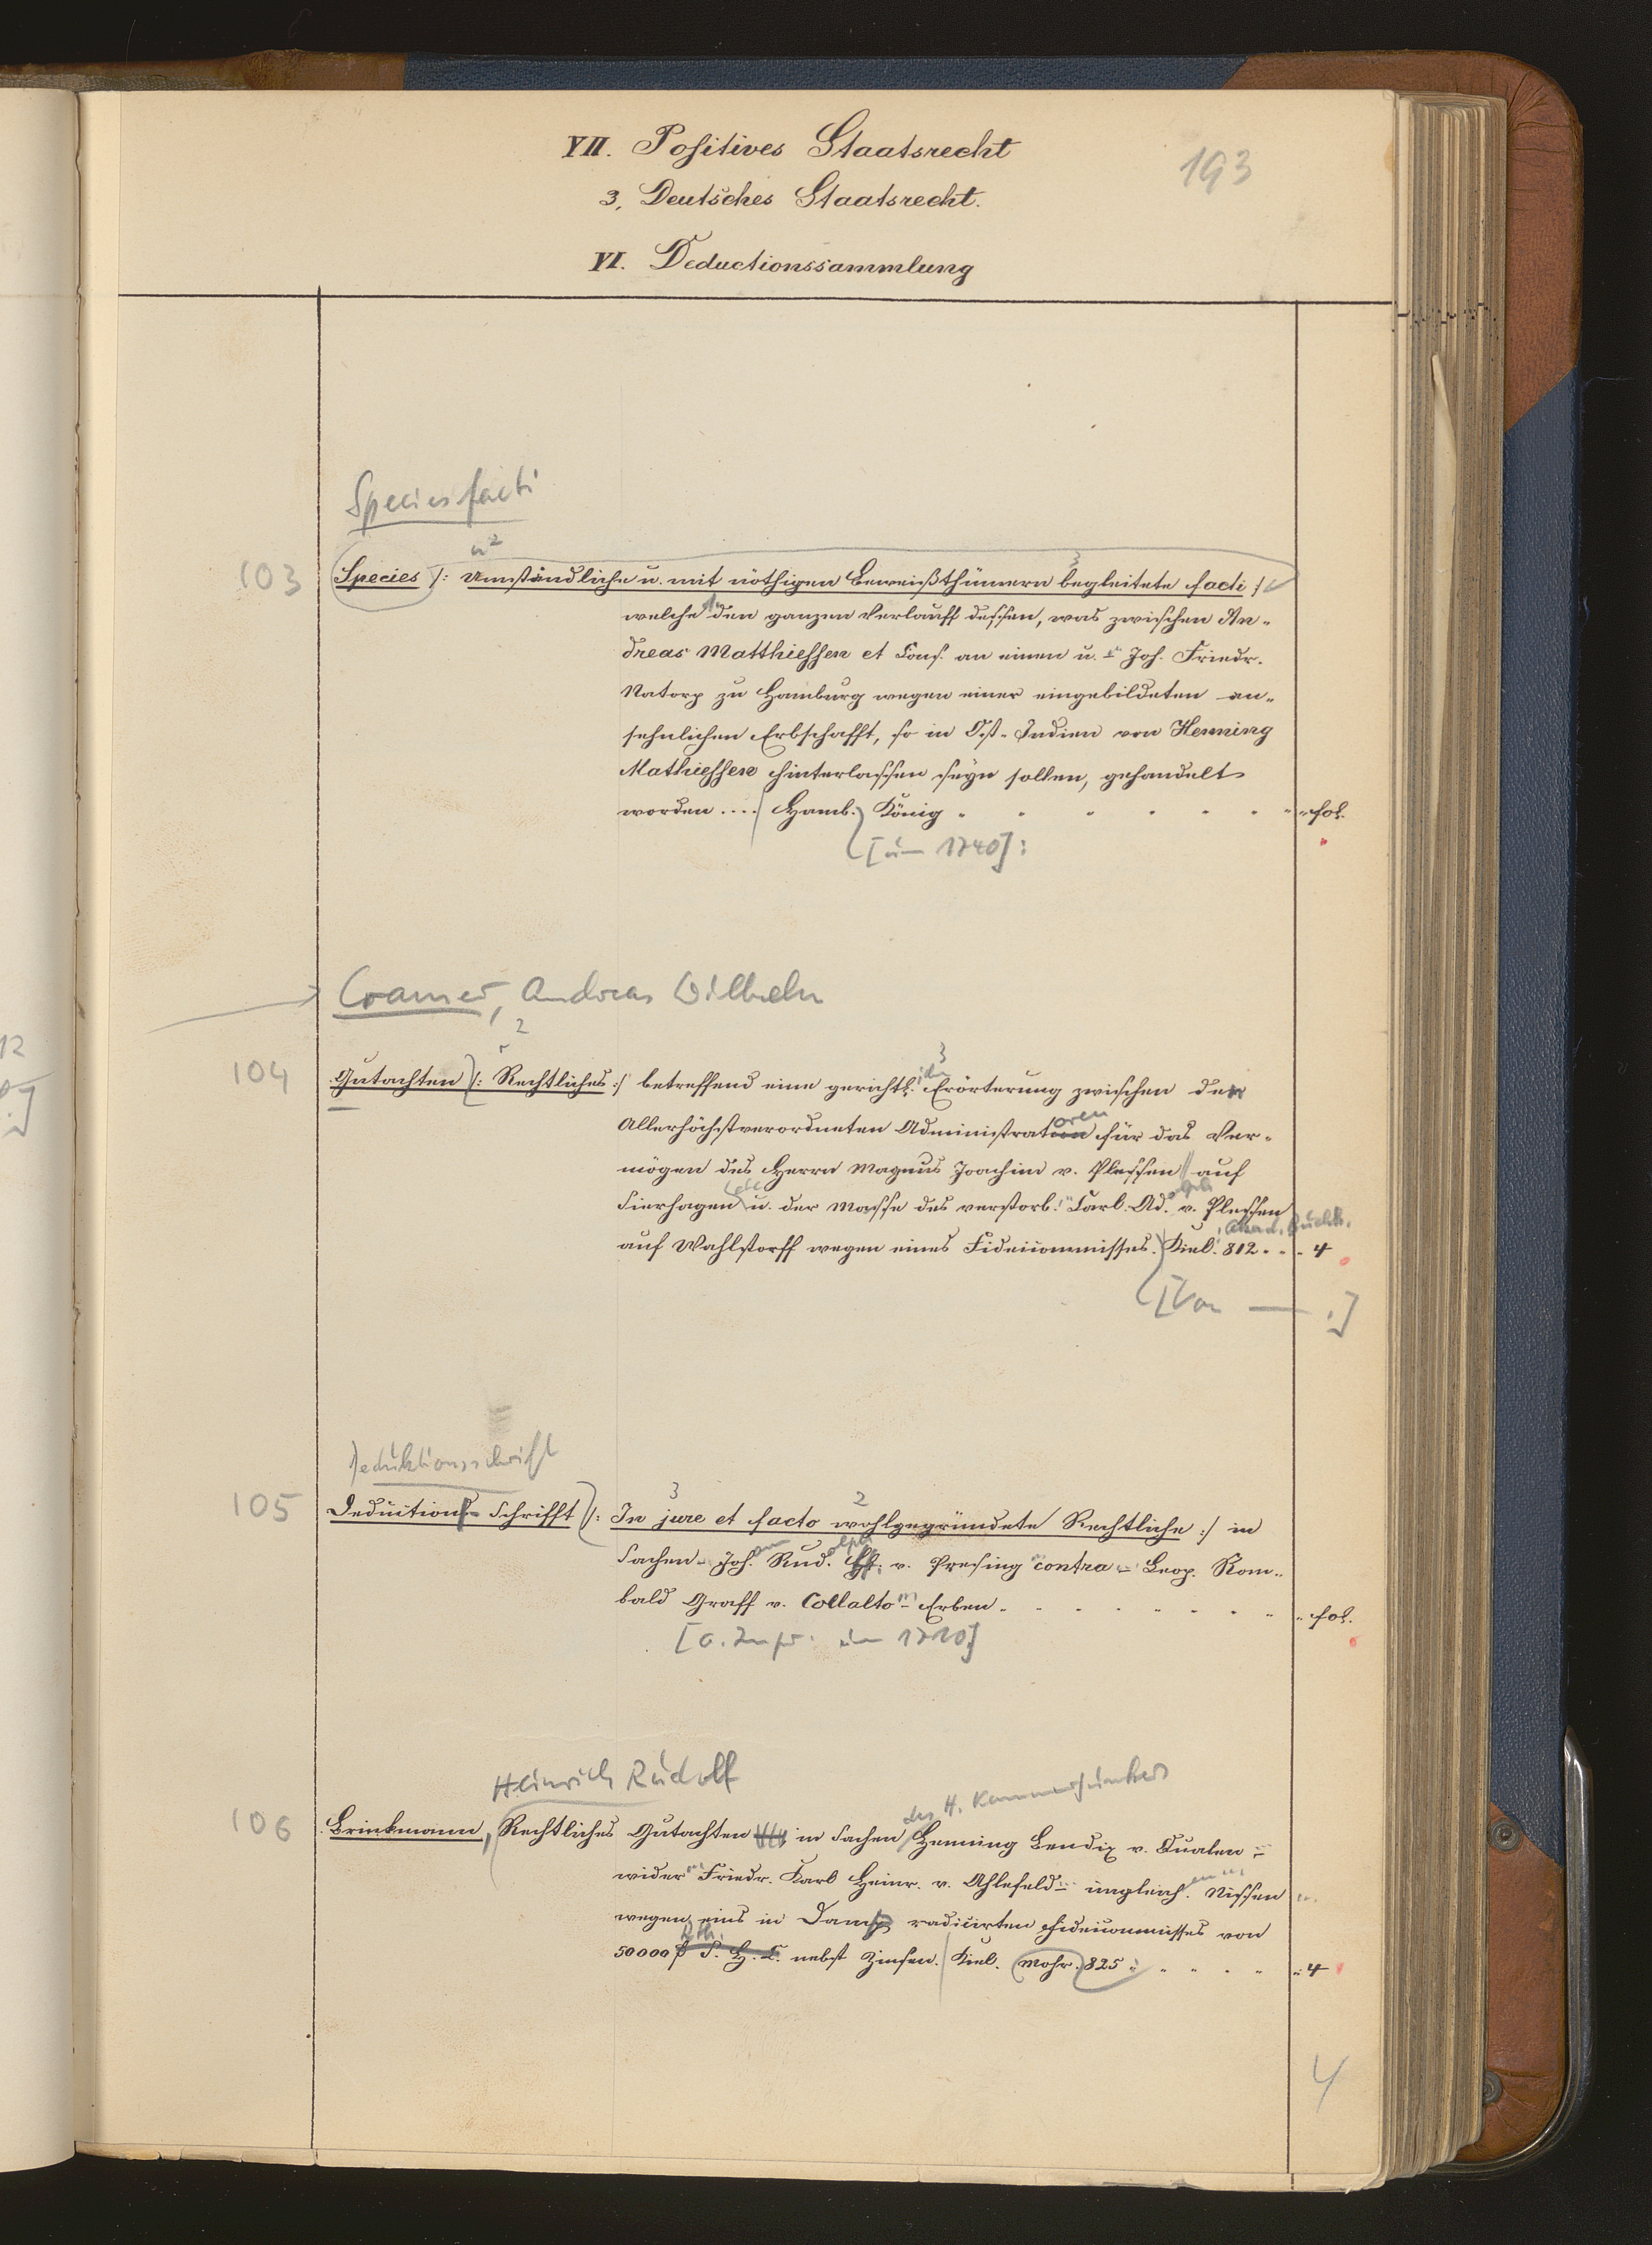 VII. Positives Staatsrecht
193
3. Deutsches Staatsrecht.
VI. Deductionssammlung
Species facti
103 Species /: Umständliche u. mit nöthigen Beweißthümern begleitete facti :/
welche den ganzen Verlauff dessen, was zwischen An-
dreas Matthiessen et Cons. an einen u. Joh. Friedr.
Natorp zu Hamburg wegen einer eingebildeten an-
sehnlichen Erbschafft, so in Ost-Indien von Henning
Mathiessen hinterlassen seyn sollen, gehandelt
worden .... Hamb. König fol.
[um 1740]:
Cramer, Andreas Wilhelm
104 Gutachten /: Rechtliches :/ betreffend eine gerichtl. Erörterung zwischen den
Allerhöchstverordneten Administratoren für das Ver-
mögen des Herrn Magnus Joachim v. Plessen auf
Sierhagen u. der Masse des verstorb. Carl Ad. v. Plessen
Akad. Buchh.
auf Wahlstorff wegen eines Fideicommisses. Kiel. 812. 4
[Von — .]
Deduktionsschrift
105 Deductions-Schrifft /: In jure et facto wohlgegründete Rechtliche :/ in
Sachen Joh. Rud. v. Presing contra Leop. Rom-
bald Graff v. Collalto Erben fol.
[o. Impr. um 1710]
Heinrich Rudolf
des H. Kammerjunkers
106 Brinkmann, Rechtliches Gutachten in Sachen Henning Bendix v. Qualen
wider Friedr. Karl Heinr. v. Ahlefeld ungleich. Nissen
wegen eins in Damp radicirten Fideicommisses von
50000 Rth. S. H. C. nebst Zinsen. Kiel. Mohr. 825 4
4